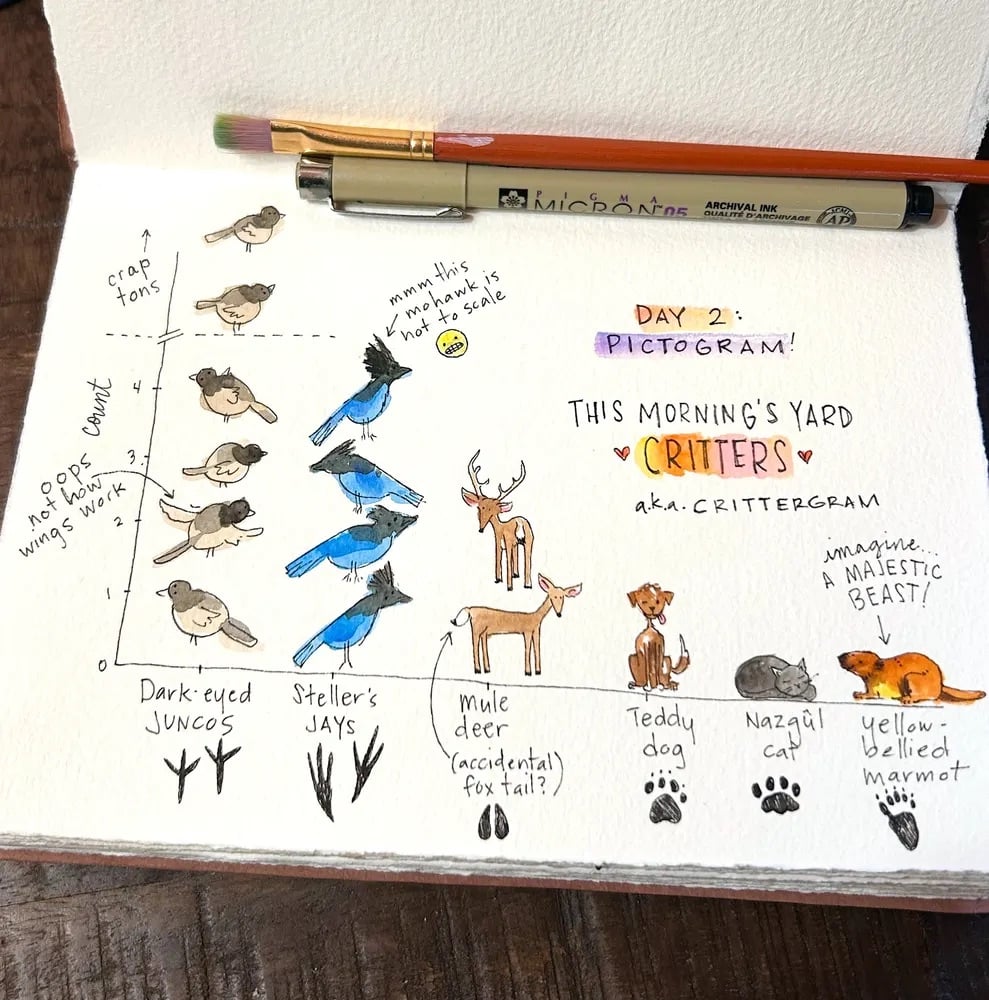 PIGMA
MICRON™ 05
ARCHIVAL INK
QUALITÉ D'ARCHIVAGE
ACMI
AP
crap
tons
mmm this
mohawk is
not to scale
DAY 2:
PICTOGRAM!
THIS MORNING'S YARD
CRITTERS
a.k.a. CRITTERGRAM
count
4
3
2
1
0
oops
not how
wings work
imagine...
A MAJESTIC
BEAST!
Dark-eyed
JUNCOS
Steller's
JAYS
mule
deer
(accidental)
fox tail?
Teddy
dog
Nazgûl
cat
yellow-
bellied
marmot